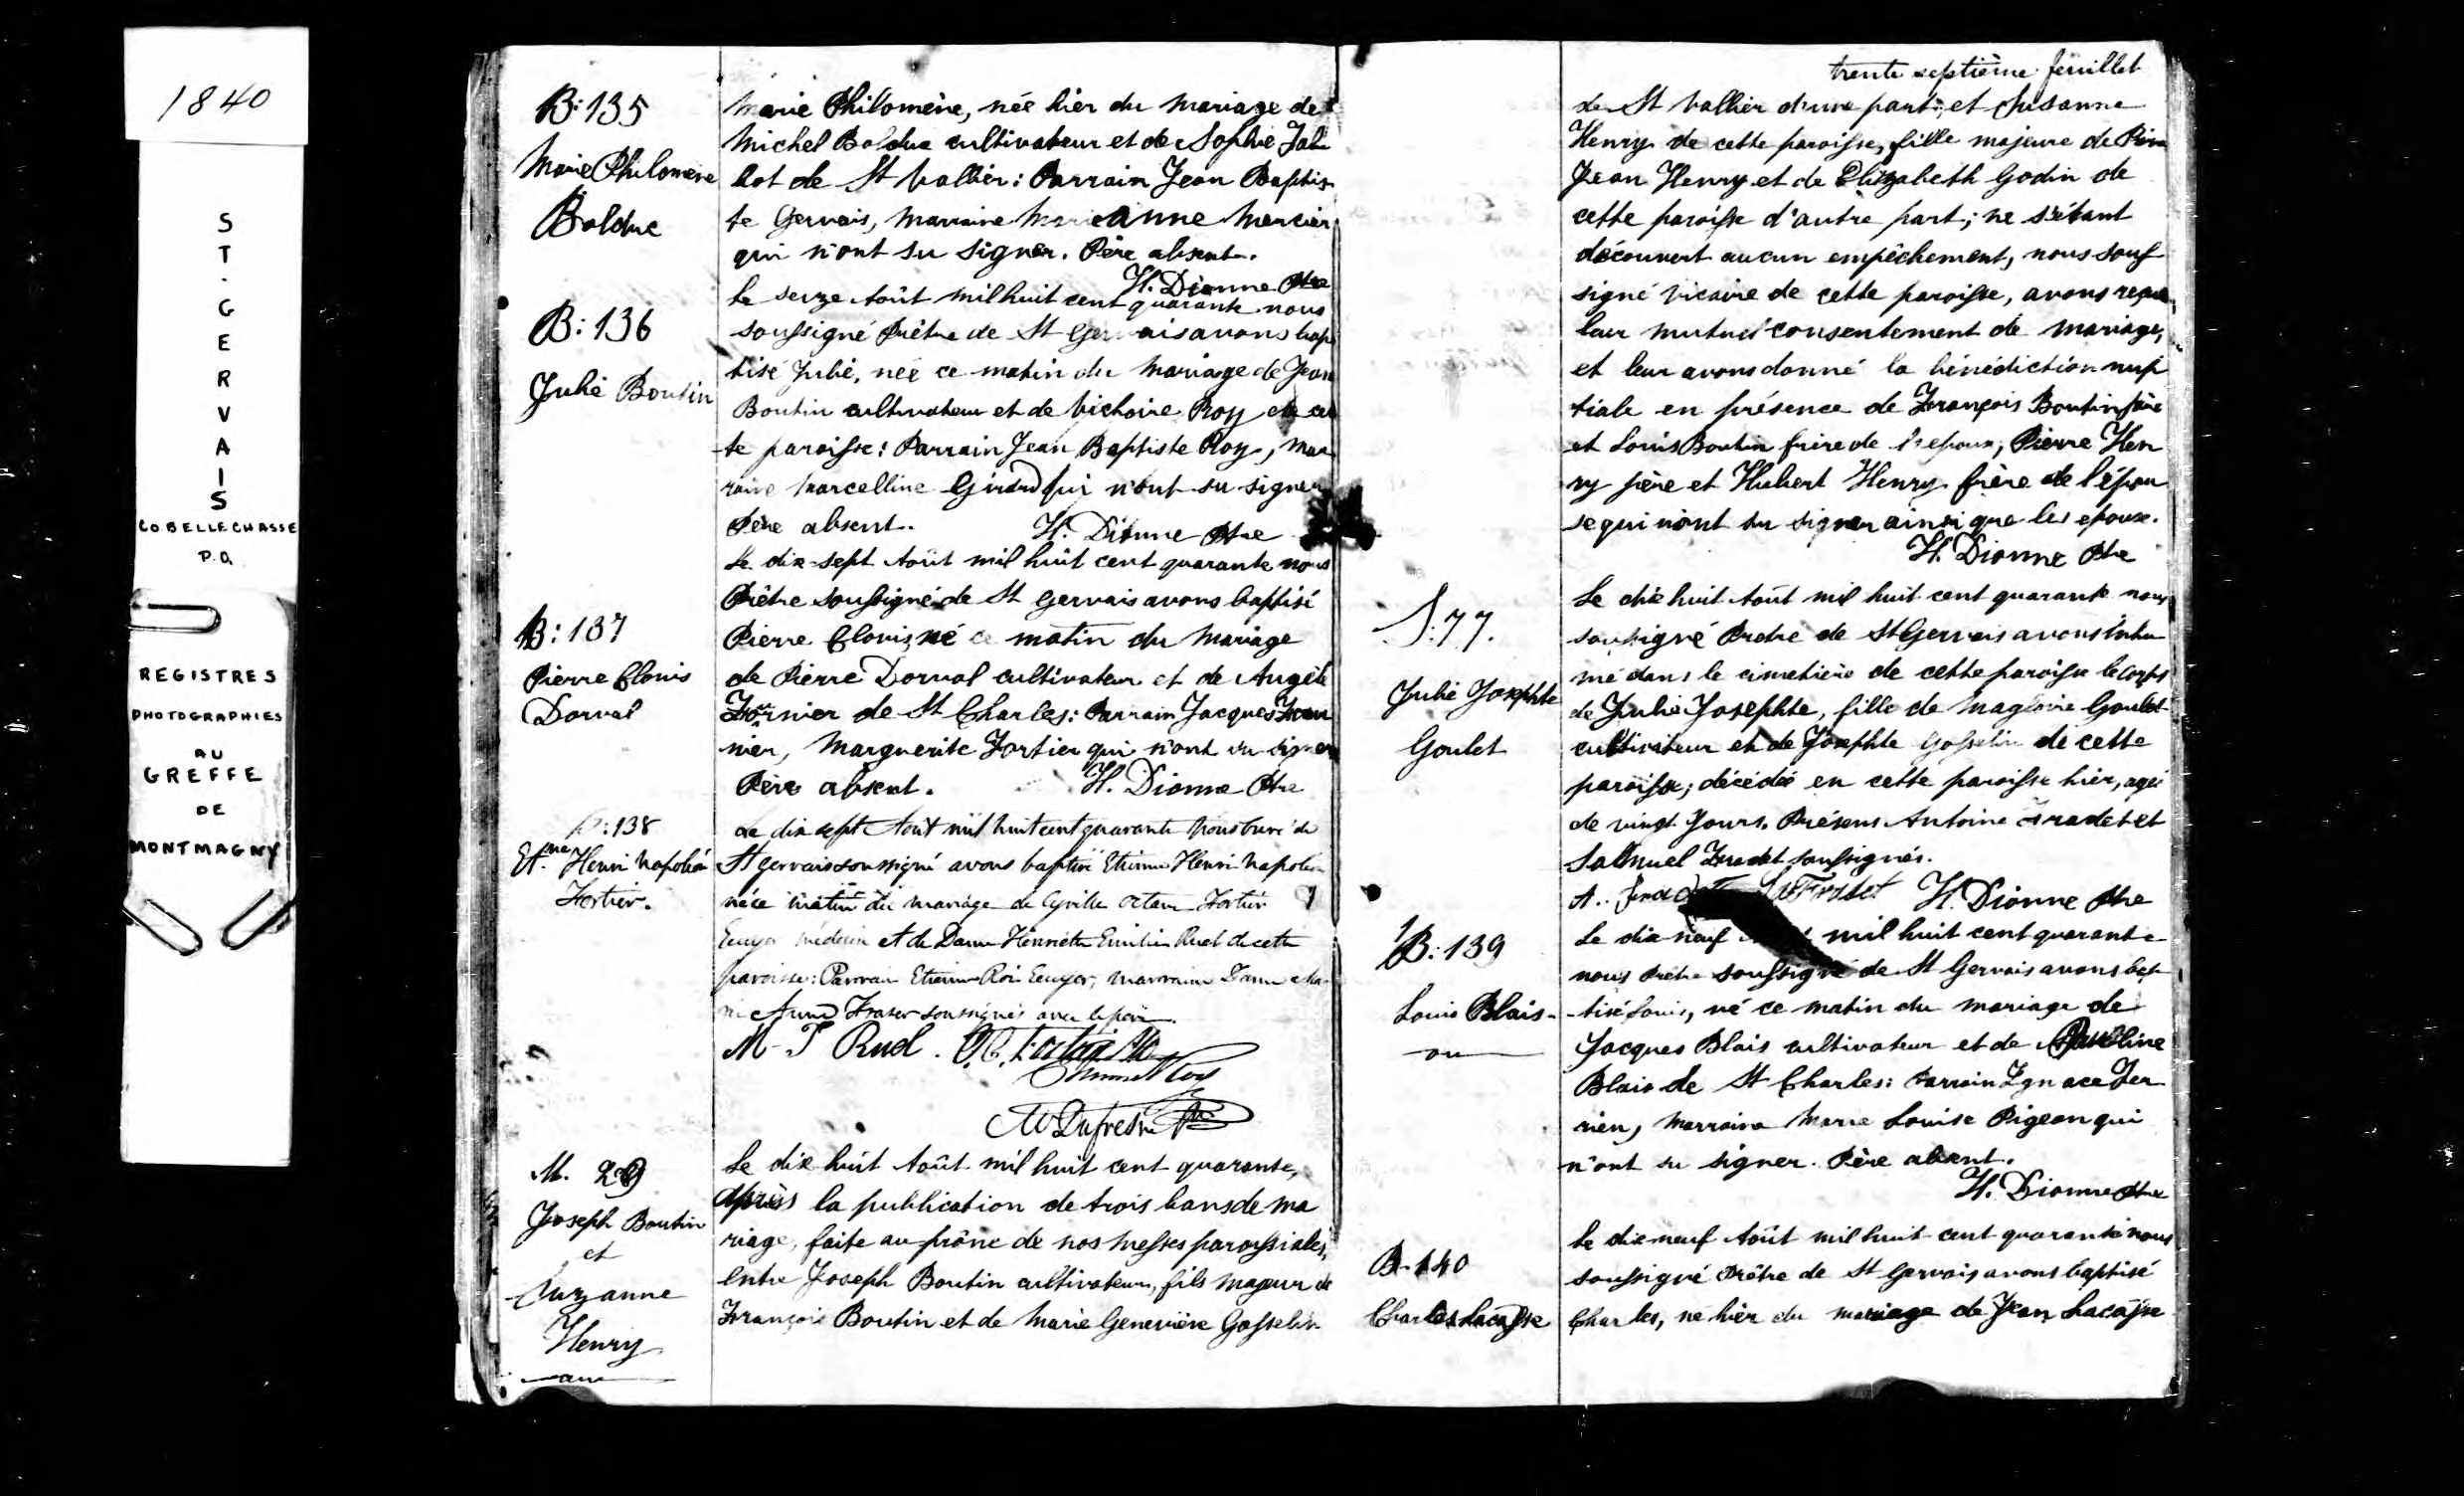 1840
ST. GERVAIS
CO BELLECHASSE
P.Q.
REGISTRES
PHOTOGRAPHIES
AU
GREFFE
DE
MONTMAGNY
B: 135
Marie Philomène
Bolduc
Marie Philomène, née hier du mariage de
Michel Bolduc cultivateur et de Sophie Tal
bot de St Vallier: Parrain Jean Baptis
te Gervais, marraine Marie Anne Mercier
qui n'ont su signer. Père absent.
H. Dionne Ptre
B: 136
Julie Boutin
Le seize Août mil huit cent quarante nous
soussigné Prêtre de St Gervais avons bap
tisé Julie, née ce matin du mariage de Jean
Boutin cultivateur et de Victoire Roy de cet
te paroisse: Parrain Jean Baptiste Roy, mar
raine Marcelline Girard qui n'ont su signer
Père absent. H. Dionne Ptre
B: 137
Pierre Clovis
Dorval
Le dix-sept Août mil huit cent quarante nous
Prêtre soussigné de St Gervais avons baptisé
Pierre Clovis, né ce matin du mariage
de Pierre Dorval cultivateur et de Angèle
Fornier de St Charles: Parrain Jacques
nier, Marguerite Fortier qui n'ont su signer
Père absent. H. Dionne Ptre
B: 138
Et.ne Henri Napoléon
Fortier.
Le dix sept Août mil huit cent quarante Nous Curé de
St Gervais soussigné avons baptisé Etienne Henri Napoléon
né ce matin du mariage de Cyrille Octave Fortier
Ecuyer Médecin et de Dame Henriette Emilie Ruel de cette
paroisse: Parrain Etienne Roi Ecuyer, marraine Dame Ma-
rie Fraser soussignés avec le père.
M- T Ruel. O.C. Fortier
Etienne Roy
M Dufresne Ptre
M. 29
Joseph Boutin
et
Suzanne
Henry
Le dix huit Août mil huit cent quarante,
Après la publication de trois bans de ma
riage, faite au prône de nos messes paroissiales,
entre Joseph Boutin cultivateur, fils majeur de
François Boutin et de Marie Geneviève Gosselin
trente septième feuillet
de St Vallier d'une part; et Susanne
Henry de cette paroisse, fille majeure de
Jean Henry et de Elizabeth Godin de
cette paroisse d'autre part; ne s'étant
découvert aucun empêchement, nous sous
signé vicaire de cette paroisse, avons reçu
leur mutuel consentement de mariage,
et leur avons donné la bénédiction nup
tiale en présence de François Boutin père
et Louis Boutin frère de l'epoux, Pierre Hen
ry père et Hubert Henry frère de l'épou
se qui n'ont su signer ainsi que les epoux.
H. Dionne Ptre
S. 77.
Julie Josephte
Goulet
Le dix huit Août mil huit cent quarante nous
soussigné Prêtre de St Gervais avons inhu
mé dans le cimetière de cette paroisse le corps
de Julie Josephte, fille de Magloire Goulet
cultivateur et de Josephte Gosselin de cette
paroisse; décédée en cette paroisse hier, agée
de vingt jours. Présens Antoine Fradet et
Salmuel Fradet soussignés.
A. Fradet Fradet H. Dionne Ptre
B: 139
Louis Blais
Le dix neuf mil huit cent quarante
nous Prêtre soussigné de St Gervais avons bap
tisé Louis, né ce matin du mariage de
Jacques Blais cultivateur et de
Blais de St Charles: Parrain Ignace Ter
rien, marraine Marie Louise Pigeon qui
n'ont su signer. Père absent.
H. Dionne Ptre
B. 140
Charles Lacasse
Le dix neuf Août mil huit cent quarante nous
soussigné Prêtre de St Gervais avons baptisé
Charles, né hier du mariage de Jean Lacasse